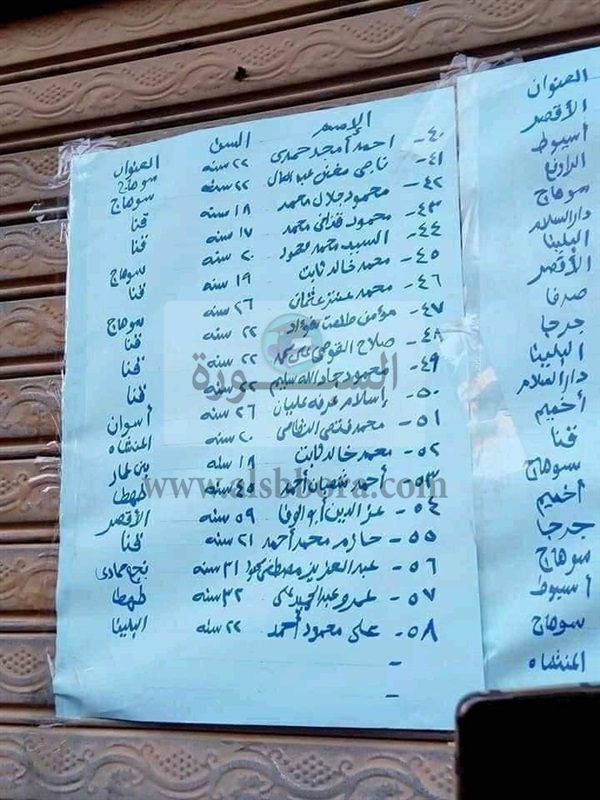 الإسم السن العنوان
٤٠- احمد أمجد حمدى ٢٢ سنه سوهاج
٤١- ناجى عبد العال ٢٢ سوهاج
٤٢- محمود جلال محمد ١٨ سنه قنا
٤٣- محمود محمد ١٧ سنه قنا
٤٤- السيد محمد محمود ٢٠ سنه سوهاج
٤٥- محمد خالد ثابت ١٩ سنه قنا
٤٦- محمد عنتر عثمان ٢٦ سنه سوهاج
٤٧- مؤمن طلعت فؤاد ٢٢ سنه قنا
٤٨- صلاح ٢٢ سنه قنا
٤٩- محمود جاد الله سليم ٢٢ سنه قنا
٥٠- إسلام عرفه عليان ٢٦ سنه أسوان
٥١- محمد فتحى ٢٠ سنه المنشاه
٥٢- محمد خالد ثابت ١٩ سنه
٥٣- أحمد شعبان أحمد سنه طهطا
٥٤- عز الدين أبو الوفا ٥٩ سنه الأقصر
٥٥- حازم محمد أحمد ٢١ سنه قنا
٥٦- عبد العزيز مصطفى ٣١ سنه نجع حمادى
٥٧- عمرو عبد الحميد على ٣٢ سنه طهطا
٥٨- على محمود أحمد ٢٢ سنه البلينا
-
-
العنوان
الأقصر
أسيوط
سوهاج
دار السلام
البلينا
الأقصر
صدفا
جرجا
البلينا
دار السلام
أخميم
قنا
سوهاج
أخميم
جرجا
سوهاج
أسيوط
سوهاج
المنشاه
السبورة
www.alsbbora.com